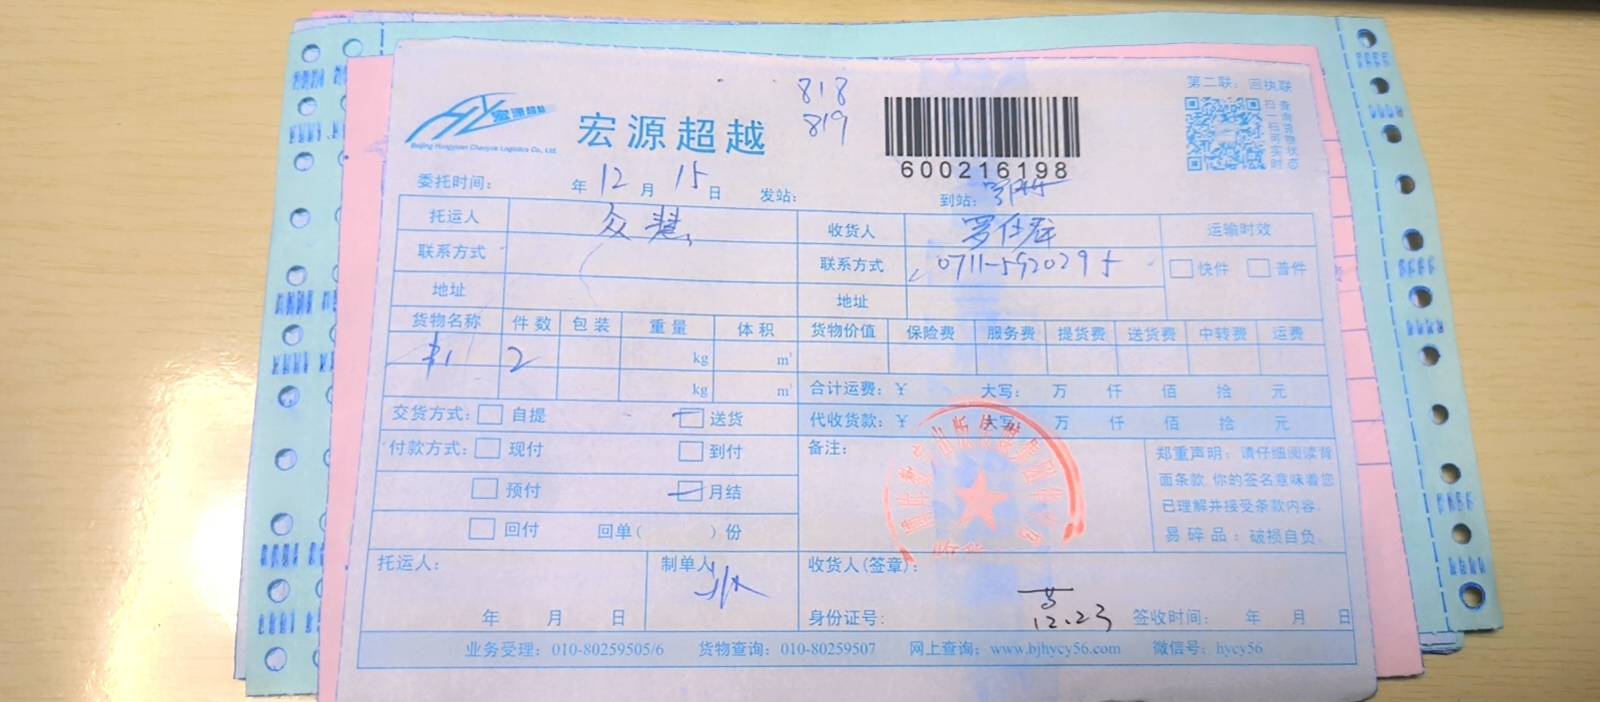 818
819
第二联：回执联
宏源超越
Beijing Hongyuan Chaoyue Logistics Co., Ltd.
宏源超越
600216198
扫一扫 查询货物实时状态
委托时间： 年 12 月 15 日 发站： 到站：
托运人 收货人 运输时效
联系方式 联系方式 0711-5920295 快件 普件
地址 地址
货物名称 件数 包装 重量 体积 货物价值 保险费 服务费 提货费 送货费 中转费 运费
2 kg m³
kg m³ 合计运费：￥ 大写： 万 仟 佰 拾 元
交货方式： 自提 送货 代收货款：￥ 大写： 万 仟 佰 拾 元
付款方式： 现付 到付 备注：
预付 月结
回付 回单（ ）份
郑重声明：请仔细阅读背
面条款，你的签名意味着您
已理解并接受条款内容。
易碎品：破损自负。
托运人： 制单人 收货人(签章)：
年 月 日 身份证号： 12.23 签收时间： 年 月 日
业务受理：010-80259505/6 货物查询：010-80259507 网上查询：www.bjhycy56.com 微信号：hycy56